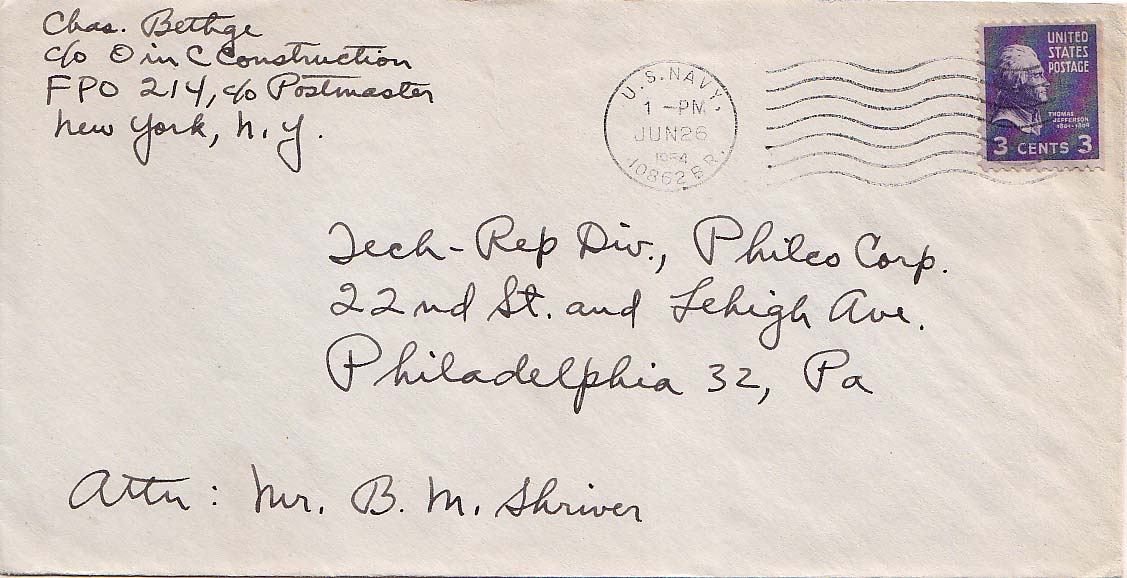 Chas. Bethge
c/o O in C Construction
FPO 214, c/o Postmaster
New York, N.Y.
U.S. NAVY,
1 - PM
JUN 26
1954
10862 BR.
UNITED
STATES
POSTAGE
THOMAS
JEFFERSON
1801-1809
3 CENTS 3
Tech-Rep Div., Philco Corp.
22nd St. and Lehigh Ave.
Philadelphia 32, Pa
Attn: Mr. B. M. Shriver